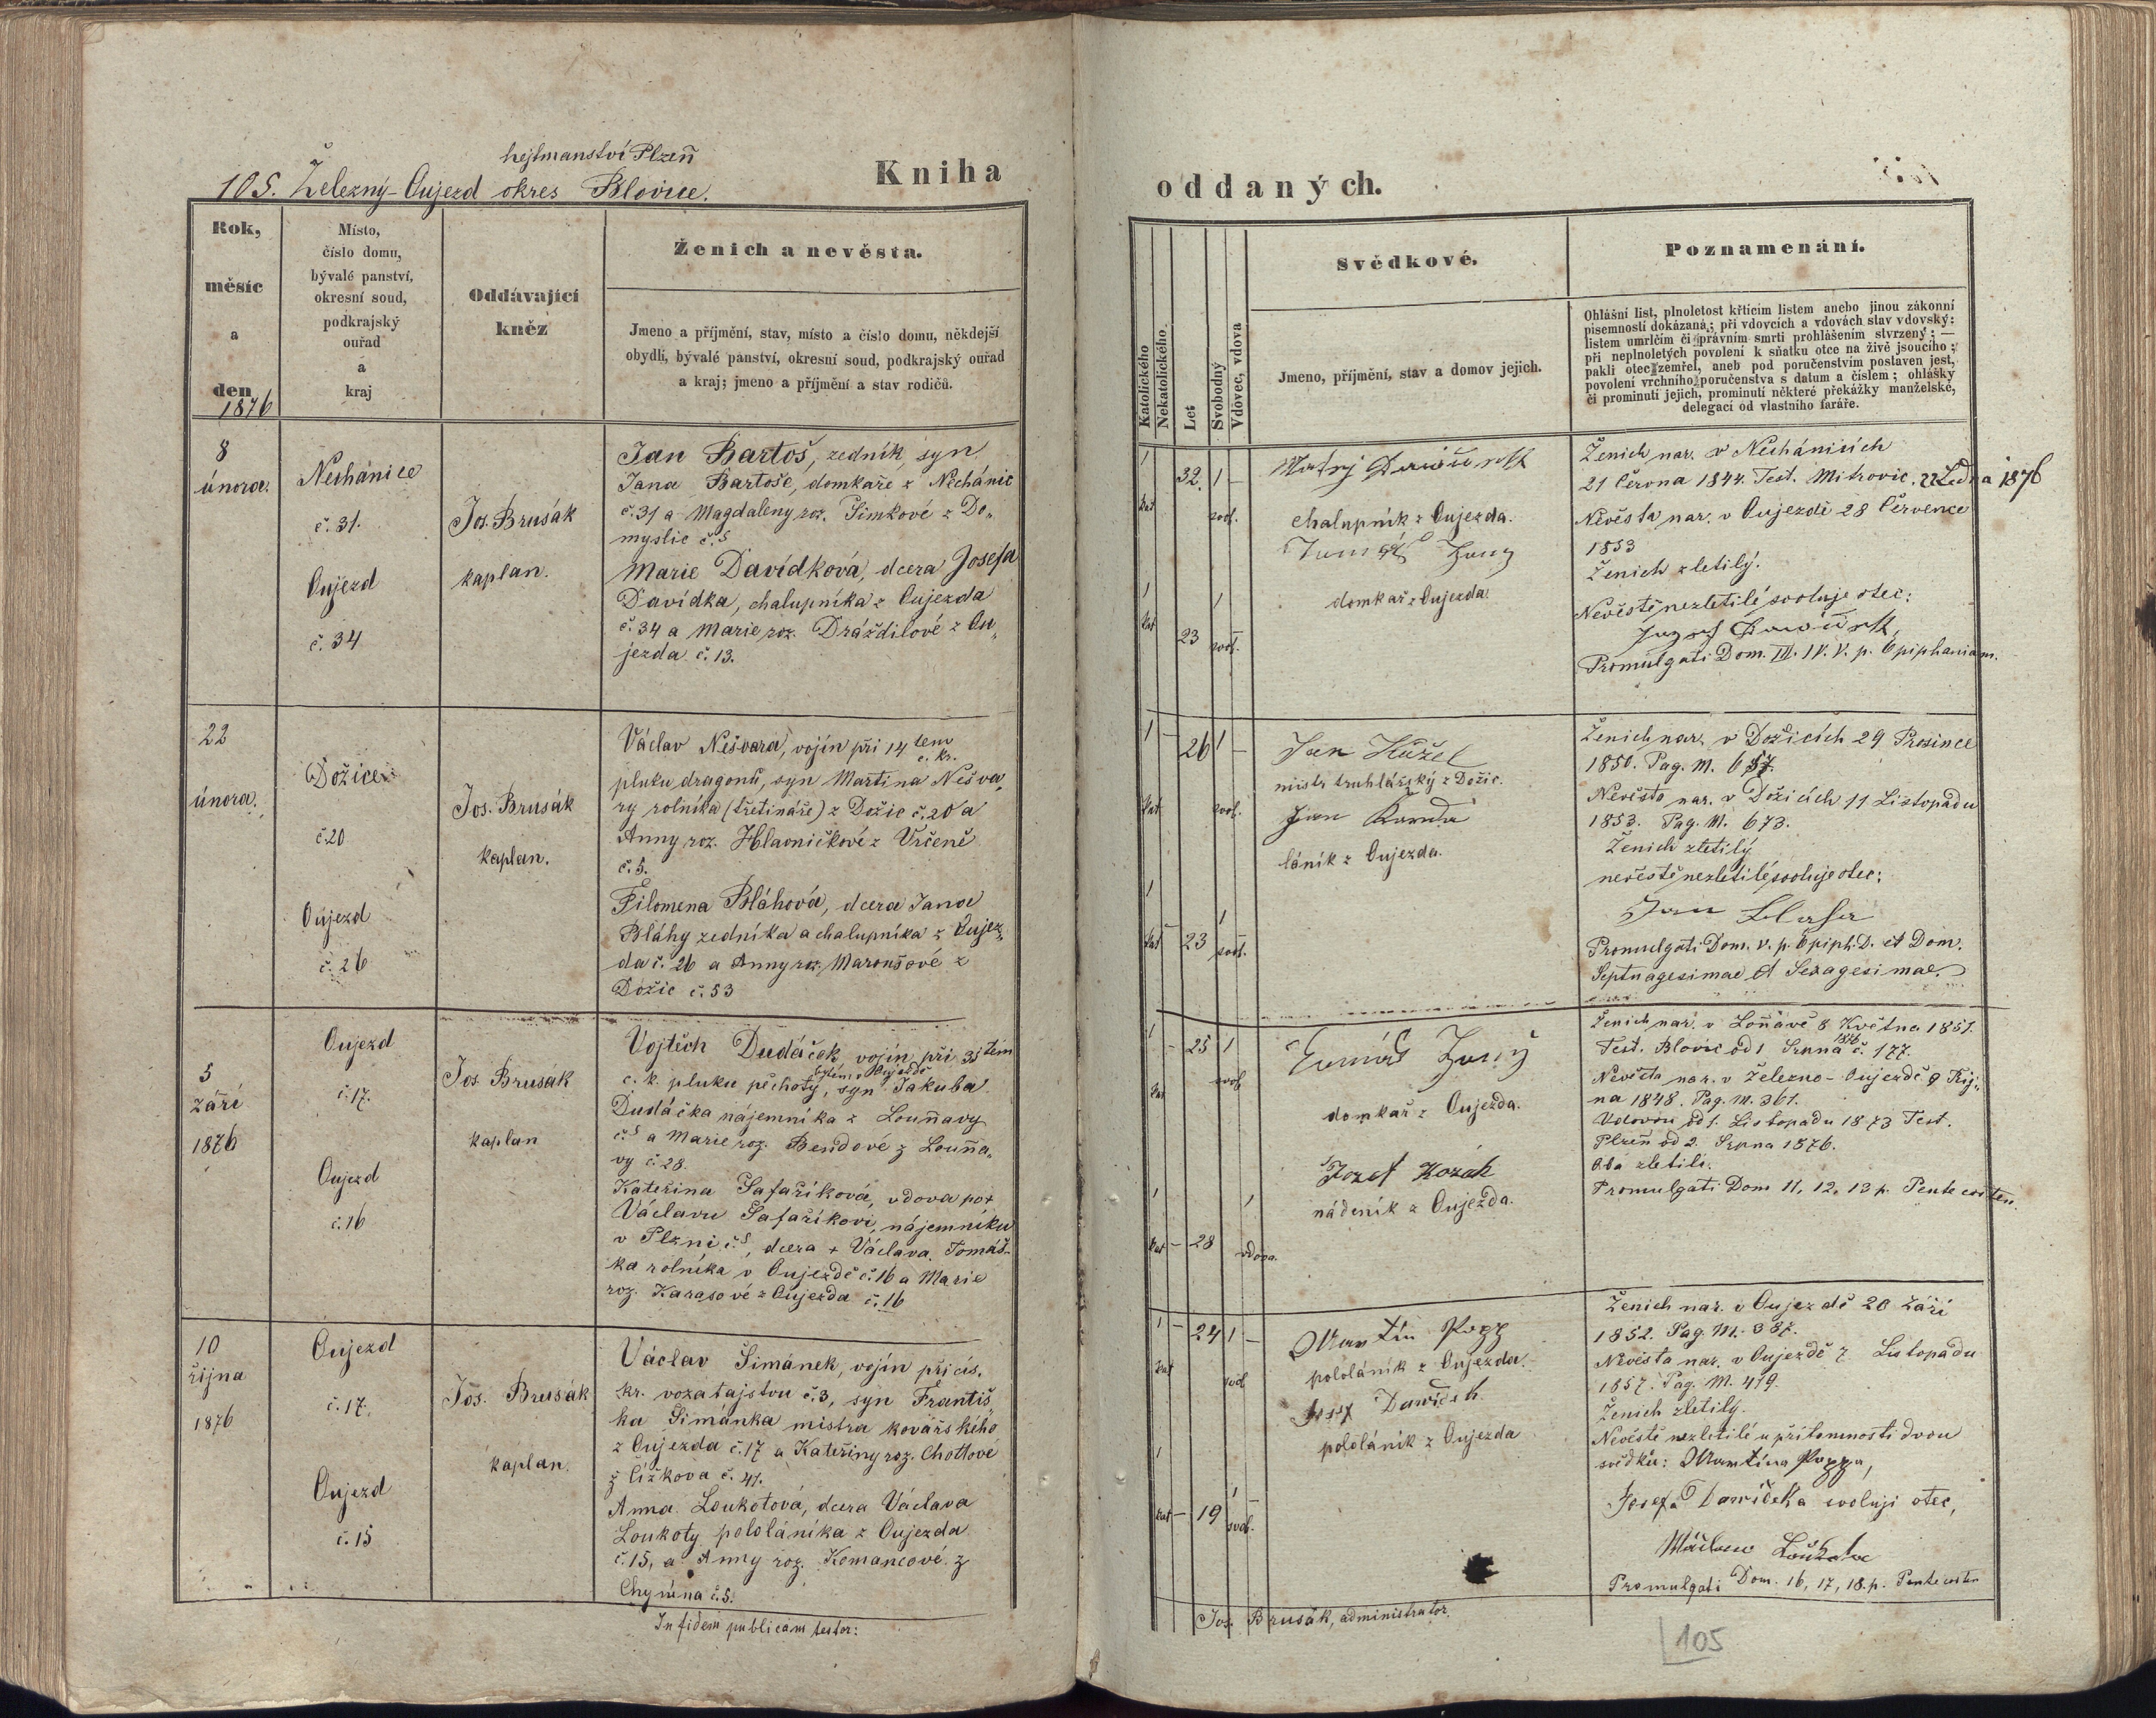 hejtmanství Plzeň
105. Železný-Oujezd okres Blovice.
Kniha
Rok,
měsíc
a
den
1876
Místo,
číslo domu,
bývalé panství,
okresní soud,
podkrajský
ouřad
a
kraj
Oddávající
kněz
Ženich a nevěsta.
Jmeno a příjmění, stav, místo a číslo domu, někdejší
obydlí, bývalé panství, okresní soud, podkrajský ouřad
a kraj; jmeno a příjmění a stav rodičů.
8
února.
Nechánice
č. 31.
Oujezd
č. 34
Jos. Brusák
kaplan.
Jan Bartoš, zedník, syn
Jana Bartoše, domkaře z Nechánic
č. 31 a Magdaleny roz. Šimkové z Do„
myslic č. 5
Marie Davídková, dcera Josefa
Davídka, chalupníka z Oujezda
č. 34 a Marie roz. Dráždilové z Ou„
jezda č. 13.
22
února.
Dožice
č. 20
Oujezd
č. 26
Jos. Brusák
kaplan.
Václav Nešvara, vojín při 14 tem
c. kr.
pluku dragonů, syn Martina Nešva„
ry rolníka (třetináře) z Dožic č. 20 a
Anny roz. Hlavničkové z Vrčeně
č. 5.
Filomena Bláhová, dcera Jana
Bláhy zedníka a chalupníka z Oujez„
da č. 26 a Anny roz. Maroušové z
Dožic č. 53
5
září
1876
Oujezd
č. 17.
Oujezd
č. 16
Jos Brusák
kaplan
Vojtěch Dudáček, vojín při 35 tém
bytem v Oujezdě
c. k. pluku pěchoty, syn Jakuba
Dudáčka nájemníka z Louňavy
č. 5 a Marie roz. Bendové z Louňa„
vy č. 28.
Kateřina Šafaříková, vdova po +
Václavu Šafaříkovi, nájemníku
v Plzni č. 5, dcera + Václava Tomáš„
ka rolníka v Oujezdě č. 16 a Marie
roz. Karasové z Oujezda č. 16
10
října
1876
Oujezd
č. 17.
Oujezd
č. 15
Jos. Brusák
kaplan.
Václav Šimánek, vojín při cís.
kr. vozatajstvu č. 3, syn Františ„
ka Šimánka mistra kovářského
z Oujezda č. 17 a Kateřiny roz. Chottové
z Čížkova č. 41.
Anna Loukotová, dcera Václava
Loukoty pololáníka z Oujezda
č. 15, a Anny roz. Komancové z
Chynína č. 5.
In fidem publicam testor:
oddaných.
Katolického
Nekatolického
Let
Svobodný
Vdovec, vdova
Svědkové.
Jmeno, příjmění, stav a domov jejich.
Poznamenání.
Ohlášní list, plnoletost křticím listem anebo jinou zákonní
písemností dokázaná; při vdovcích a vdovách stav vdovský:
listem úmrlčím či právním smrti prohlášením stvrzený; —
při neplnoletých povolení k sňatku otce na živě jsoucího;
pakli otec zemřel, aneb pod poručenstvím postaven jest,
povolení vrchního poručenstva s datum a číslem; ohlášky
či prominutí jejich, prominutí některé překážky manželské,
delegací od vlastního faráře.
1
kat
32.
1 –
svob.
1
kat
23
1
svob.
chalupník z Oujezda.
domkař z Oujezda.
Ženich nar. v Nechánicích
21 Června 1844. Test. Mitrovic. 22 Ledna 1876
Nevěsta nar. v Oujezdě 28 Července
1853
Ženich zletilý.
Nevěstě nezletilé svoluje otec:
Promulgati Dom. III. IV. V. p. Epiphaniam.
1
kat
26
1
svob.
1
kat
23
1
svob.
Jan Kůžel
mistr truhlářský z Dožic.
Jan
láník z Oujezda.
Ženich nar. v Dožicích 29 Prosince
1850. Pag. M. 657.
Nevěsta nar. v Dožicích 11 Listopadu
1853. Pag. M. 673.
Ženich zletilý
nevěstě nezletilé svoluje otec:
Jan Blaha
Promulgati Dom. V. p. Epiph. D. et Dom.
Septuagesimae et Sexagesimae.
1
kat
25
1
svob
1
kat
28
1
vdova.
Tomáš
domkař z Oujezda.
Jozef Kozák
nádeník z Oujezda.
Ženich nar. v Louňavě 8 Května 1851.
Test. Blovic od 1 Srpna 1876 č. 177.
Nevěsta nar. v Železno-Oujezdě 9 Říj„
na 1848. Pag. M. 361.
Vdovou od 1. Listopadu 1873 Test.
Plzeň od 2. Srpna 1876.
Oba zletilí.
Promulgati Dom 11, 12, 13 p. Pentecosten.
1
kat
24
1
svob
1
kat
19
1
svob.
Martin Popp
pololáník z Oujezda.
Josef Dawídek
pololáník z Oujezda
Ženich nar. v Oujezdě 20 Září
1852. Pag. M. 387.
Nevěsta nar. v Oujezdě 7 Listopadu
1857. Pag. M. 419.
Ženich zletilý.
Nevěstě nezletilé u přítomnosti dvou
svědků: Martina Poppa,
Josefa Dawídeka svoluji otec,
Promulgati Dom. 16, 17, 18. p. Pentecosten
Jos. Brusák, administrator.
105